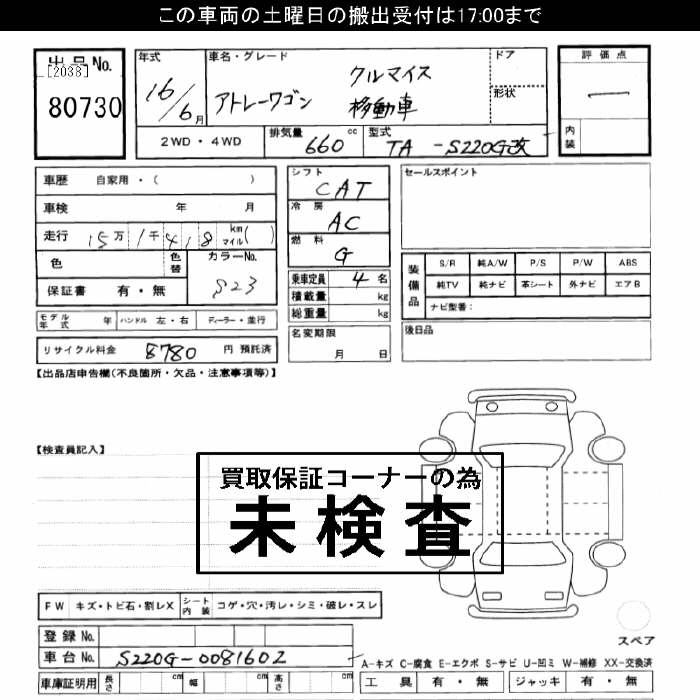 この車両の土曜日の搬出受付は17:00まで
出品No.
[2038]
80730
年式
16/6月
車名・グレード
アトレーワゴン
クルマイス
移動車
ドア
形状
評価点
―
内装
2WD・4WD
排気量 660 cc
型式 TA-S220G改
車歴 自家用・( )
車検 年 月
走行 15万1千418 km マイル( )
色
色替
カラーNo.
S23
保証書 有・無
モデル年式 年 ハンドル 左・右 ディーラー・並行
リサイクル料金 8780 円 預託済
シフト CAT
冷房 AC
燃料 G
乗車定員 4名
積載量 kg
総重量 kg
名変期限
月 日
セールスポイント
装備品
S/R 純A/W P/S P/W ABS
純TV 純ナビ 革シート 外ナビ エアB
ナビ型番:
後日品
【出品店申告欄(不良箇所・欠品・注意事項等)】
【検査員記入】
買取保証コーナーの為
未検査
FW キズ・トビ石・割レX シート内装 コゲ・穴・汚レ・シミ・破レ・スレ
登録No.
車台No. S220G-0081602
車庫証明用 長さ cm 幅 cm 高さ cm
スペア
A-キズ C-腐食 E-エクボ S-サビ U-凹ミ W-補修 XX-交換済
工具 有・無 ジャッキ 有・無